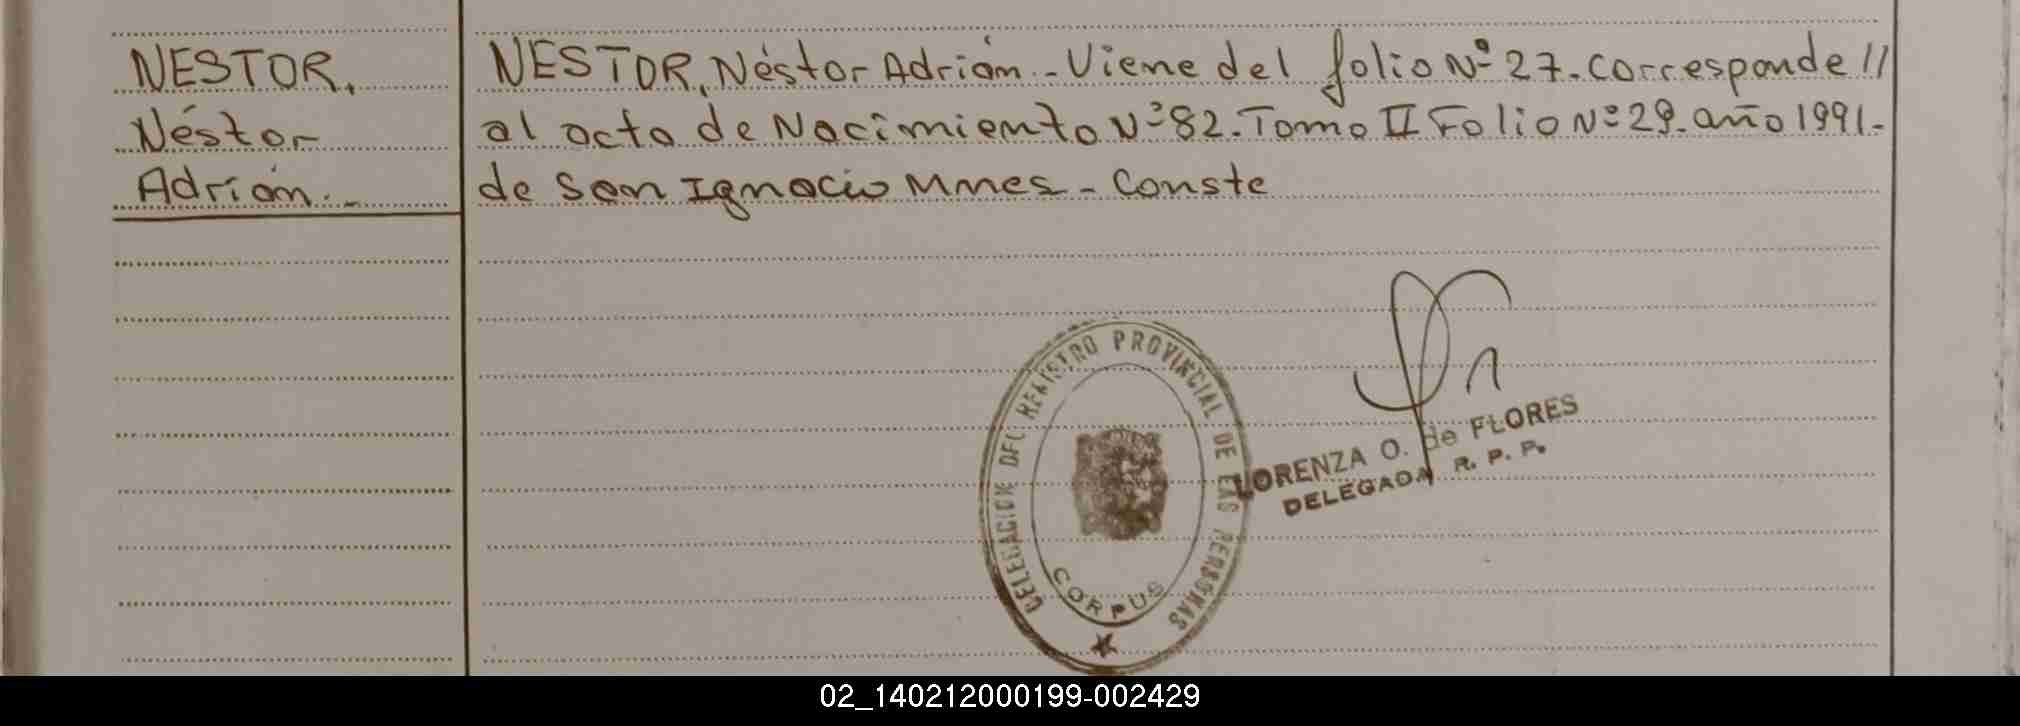 NESTOR,
Néstor
Adrián.-
NESTOR, Néstor Adrián.- Viene del folio Nº 27.- corresponde //
al acta de Nacimiento Nº 82.- Tomo II Folio Nº 29.- año 1991.-
de San Ignacio Mnes - Conste
DELEGACION DEL REGISTRO PROVINCIAL DE LAS PERSONAS
CORPUS
LORENZA O. de FLORES
DELEGADA R. P. P.
02_140212000199-002429